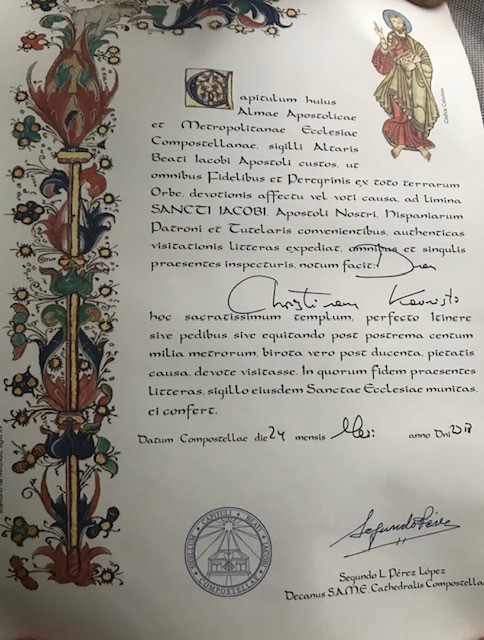 Capitulum huius
Almae Apostolicae
et Metropolitanae Ecclesiae
Compostellanae, sigilli Altaris
Beati Iacobi Apostoli custos, ut
omnibus Fidelibus et Peregrinis ex toto terrarum
Orbe, devotionis affectu vel voti causa, ad limina
SANCTI IACOBI, Apostoli Nostri, Hispaniarum
Patroni et Tutelaris convenientibus, authenticas
visitationis litteras expediat, omnibus et singulis
praesentes inspecturis, notum facit: Dnum
Christianum
hoc sacratissimum templum, perfecto Itinere
sive pedibus sive equitando post postrema centum
milia metrorum, birota vero post ducenta, pietatis
causa, devote visitasse. In quorum fidem praesentes
litteras, sigillo eiusdem Sanctae Ecclesiae munitas,
ei confert.
Datum Compostellae die 24 mensis Maii anno Dni
SIGILLUM CAPITULI BEATI IACOBI COMPOSTELLAE
Segundo Pérez
Segundo L. Pérez López
Decanus S.A.M.E. Cathedralis Compostella
Codex Calixtinus